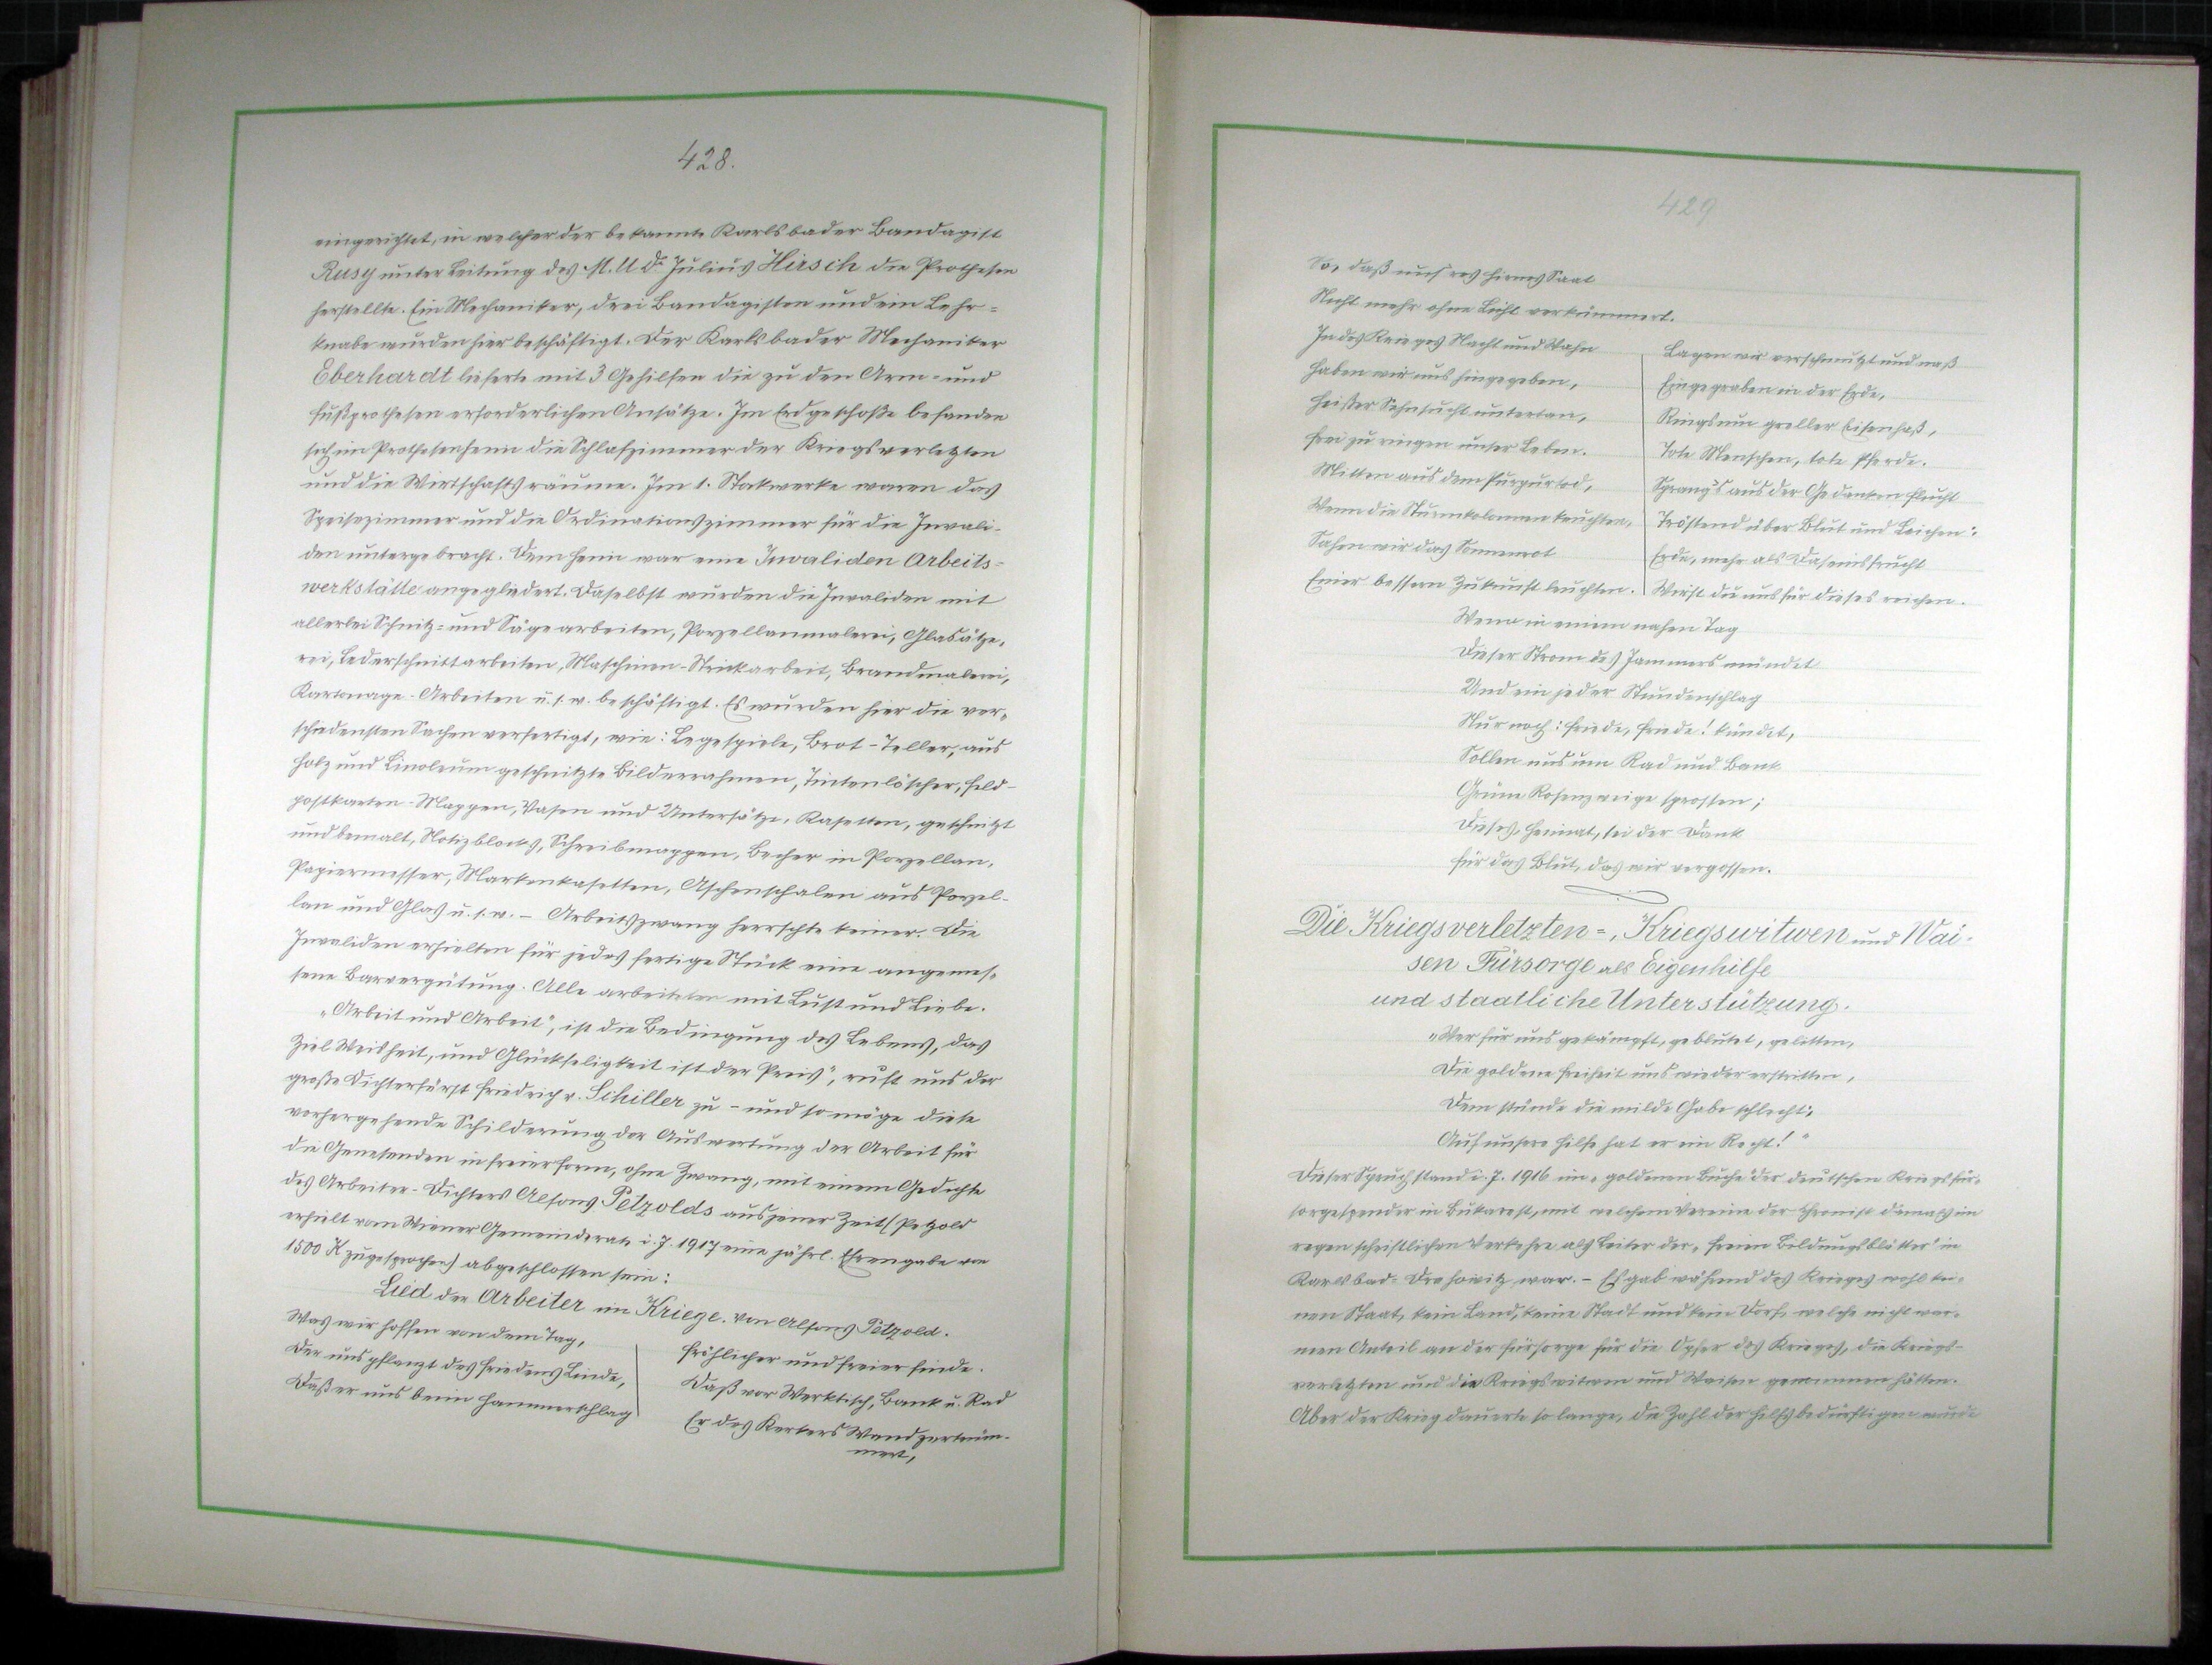 428.
eingerichtet, in welcher der bekannte Karlsbader Bandagist
Rusy unter Leitung des M. U Dr Julius Hirsch die Prothesen
herstellte. Ein Mechaniker, drei Bandagisten und ein Lehr=
knabe wurden hier beschäftigt. Der Karlsbader Mechaniker
Eberhardt lieferte mit 3 Gehilfen die zu den Arm= und
Fußprothesen erforderlichen Ansätze. Im Erdgeschoße befanden
sich im Prothesenheim die Schlafzimmer der Kriegsverletzten
und die Wirtschaftsräume. Im 1. Stockwerke waren das
Speisezimmer und die Ordinationszimmer für die Invali-
den untergebracht. Dem Heim war eine Invaliden Arbeits=
werkstätte angegliedert. Daselbst wurden die Invaliden mit
allerlei Schnitz= und Sägearbeiten, Porzellanmalerei, Glasätze-
rei, Lederschnittarbeiten, Maschinen-Strickarbeit, Brandmalerei,
Kartonage-Arbeiten u. s. w. beschäftigt. Es wurden hier die ver-
schiedensten Sachen verfertigt, wie: Legespiele, Brot-Teller, aus
Holz und Linoleum geschnitzte Bilderrahmen, Tintenlöscher, Feld-
postkarten-Mappen, Vasen und Untersätze, Kasetten, geschnitzt
und bemalt, Notizblocks, Schreibmappen, Becher in Porzellan,
Papiermesser, Markenkasetten, Aschenschalen aus Porzel-
lan und Glas u. s. w. – Arbeitszwang herrschte keiner. Die
Invaliden erhielten für jedes fertige Stück eine angemes-
sene Barvergütung. Alle arbeiteten mit Lust und Liebe.
"Arbeit und Arbeit", ist die Bedingung des Lebens, das
Ziel Weisheit, und Glückseligkeit ist der Preis", ruft uns der
große Dichterfürst Friedrich v. Schiller zu – und so möge diese
vorhergehende Schilderung der Auswertung der Arbeit für
die Genesenden in freier Form, ohne Zwang, mit einem Gedichte
des Arbeiter-Dichters Alfons Petzolds aus jener Zeit (Petzold
erhielt vom Wiener Gemeinderate i. J. 1917 eine jährl. Ehrengabe von
1500 K zugesprochen) abgeschlossen sein:
Lied der Arbeiter im Kriege. Von Alfons Petzold.
Was wir hoffen von dem Tag,
Der uns pflanzt des Friedens Linde,
Daß er uns beim Hammerschlag
Fröhlicher und freier finde.
Daß vor Werktisch, Bank u. Rad
Er des Kerkers Wand zertrüm-
mert,
429
So, daß unsres Hirnes Saat
Nicht mehr ohne Licht verkümmert.
In des Krieges Nacht und Wahn
Haben wir uns hingegeben,
Heißer Sehnsucht untertan,
Frei zu ringen unser Leben.
Mitten aus dem Purpurtod,
Wenn die Sturmkolonnen keuchten,
Sahen wir das Sonnenrot
Einer bessern Zukunft leuchten.
Lagen wir verschmutzt und naß
Eingegraben in der Erde,
Ringsum greller Eisenhaß,
Tote Menschen, tote Pferde.
Sprang's aus der Gedanken Flucht
Tröstend über Blut und Leichen:
Erde, mehr als Daseinsfrucht
Wirst du uns für dieses reichen.
Wenn in einem nahen Tag
Dieser Strom des Jammers mündet
Und ein jeder Stundenschlag
Nur noch: Friede, Friede! kündet,
Sollen uns um Rad und Bank
Grüne Rosenzweige sprossen;
Dieses, Heimat, sei der Dank
Für das Blut, das wir vergossen.
Die Kriegsverletzten=, Kriegswitwen und Wai-
sen Fürsorge als Eigenhilfe
und staatliche Unterstützung.
"Wer für uns gekämpft, geblutet, gelitten,
Die goldene Freiheit uns wieder erstritten,
Dem stünde die milde Gabe schlecht;
Auf unsere Hilfe hat er ein Recht!"
Dieser Spruch stand i. J. 1916 im "goldenen Buche" der deutschen Kriegsfür-
sorgespender in Bukarest, mit welchem Vereine der Chronist damals im
regen schriftlichen Verkehre als Leiter der "freien Bildungsblätter" in
Karlsbad-Drahowitz war. – Es gab während des Krieges wohl kei-
nen Staat, kein Land, keine Stadt und kein Dorf, welche nicht war-
men Anteil an der Fürsorge für die Opfer des Krieges, die Kriegs-
verletzten und die Kriegswitwen und Waisen genommen hätten.
Aber der Krieg dauerte so lange, die Zahl der Hilfsbedürftigen wurde